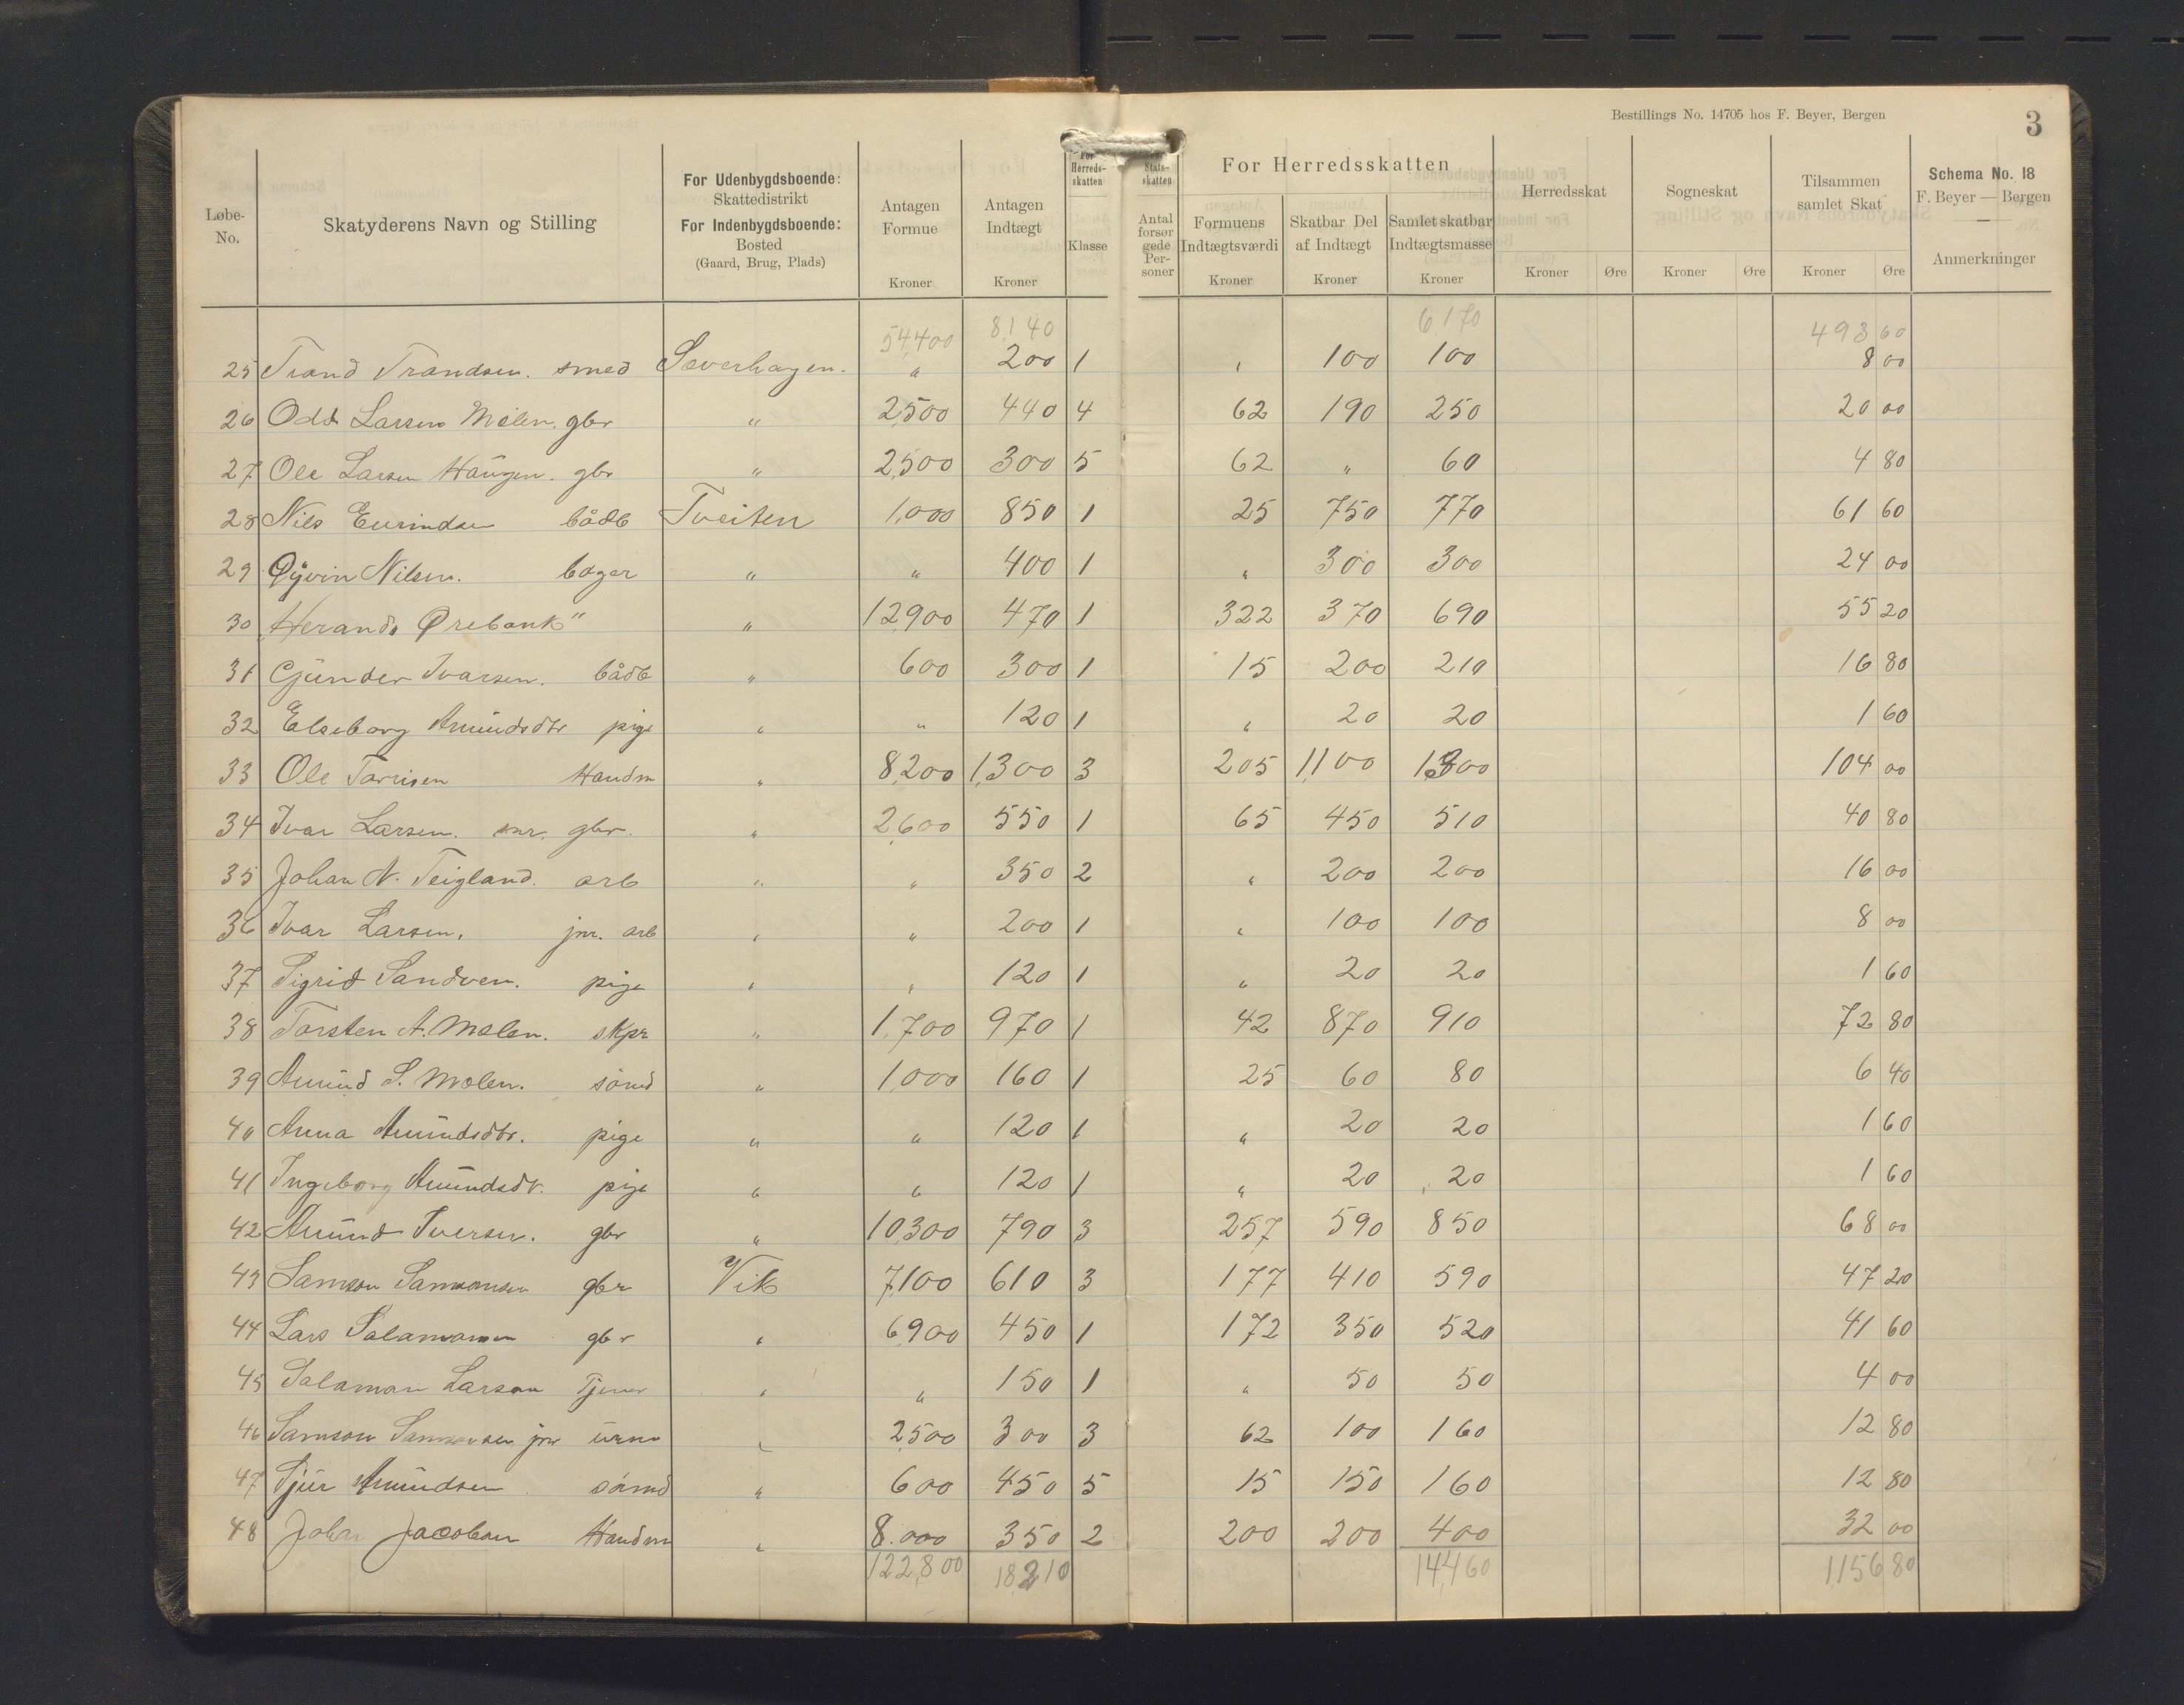 Bestillings No. 14705 hos F. Beyer, Bergen
3
Løbe-No. Skatyderens Navn og Stilling For Udenbygdsboende: Skattedistrikt For Indenbygdsboende: Bosted (Gaard, Brug, Plads) Antagen Formue Kroner Antagen Indtægt Kroner For Herreds-skatten Klasse Stats-skatten Antal forsør gede Per-soner For Herredsskatten Formuens Indtægtsværdi Kroner Skatbar Del af Indtægt Kroner Samlet skatbar Indtægtsmasse Kroner Herredsskat Kroner Øre Sogneskat Kroner Øre Tilsammen samlet Skat Kroner Øre Schema No. 18 F. Beyer — Bergen Anmerkninger
54,400 8,140 6170 493 60
25 Trand Trandsen. smed Sæverhagen. " 200 1 " 100 100 8 00
26 Odd Larsen Mælen. gbr " 2,500 440 4 62 190 250 20 00
27 Ole Larsen Haugen. gbr " 2,500 300 5 62 " 60 4 80
28 Nils Eurindsen bådb Tveiten 1,000 850 1 25 750 770 61 60
29 Øyvin Nilsen. bager " " 400 1 " 300 300 24 00
30 "Herands Ørebank" " 12,900 470 1 322 370 690 55 20
31 Gunder Ivarsen. bådb " 600 300 1 15 200 210 16 80
32 Elseborg Amundsdtr pige " " 120 1 " 20 20 1 60
33 Ole Torrisen Handm " 8,200 1,300 3 205 1,100 1,300 104 00
34 Ivar Larsen. snr. gbr. " 2,600 550 1 65 450 510 40 80
35 Johan N. Teigland. arb " " 350 2 " 200 200 16 00
36 Ivar Larsen, jnr. arb " " 200 1 " 100 100 8 00
37 Sigrid Sandven. pige " " 120 1 " 20 20 1 60
38 Torsten A. Mælen. skpr " 1,700 970 1 42 870 910 72 80
39 Amund S. Mælen. sømd " 1,000 160 1 25 60 80 6 40
40 Anna Amundsdtr. pige " " 120 1 " 20 20 1 60
41 Ingeborg Amundsdtr. pige " " 120 1 " 20 20 1 60
42 Amund Iversen. gbr " 10,300 790 3 257 590 850 68 00
43 Samson Samsonsen gbr Vik 7,100 610 3 177 410 590 47 20
44 Lars Salamonsen gbr " 6,900 450 1 172 350 520 41 60
45 Salamon Larsen Tjener " " 150 1 " 50 50 4 00
46 Samson Samsonsen jnr urm " 2,500 300 3 62 100 160 12 80
47 Sjur Amundsen sømd " 600 450 5 15 150 160 12 80
48 Johan Jacobsen Handm " 8.000 350 2 200 200 400 32 00
122,800 18,210 14,460 1156 80